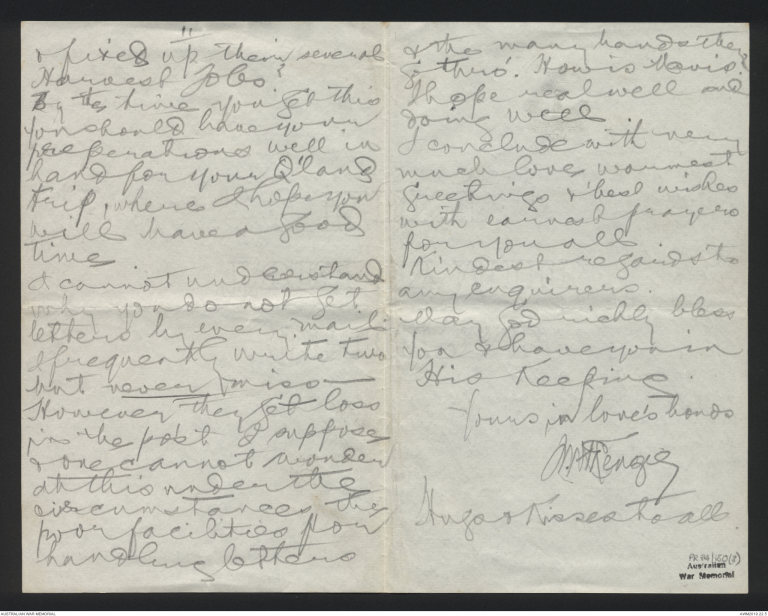 11
& fixed up their several
Harvest Jobs?
By the time you get this
you should have your
preperations well in
hand for your Q'land
trip, where I hope you
will have a good
time
I cannot understand
why you do not get
letters by every mail
I frequently write two
but never miss
However they get loss
in the post I suppose
& one cannot wonder
at this under the
circumstances, the
poor facilities for
handling letters
& the many hands they
go thro'. How is Mavis?
I hope real well and
doing well.
I conclude with very
much love, warmest
greetings & best wishes
with earnest prayers
for you all
Kindest regards to
any enquirers.
May God richly bless
you & have you in
His Keeping.
Yours in love's bonds
Hugs & Kisses to all
PR 84/150(8)
Australian
War Memorial
AUSTRALIAN WAR MEMORIAL
AWM2019.22.5